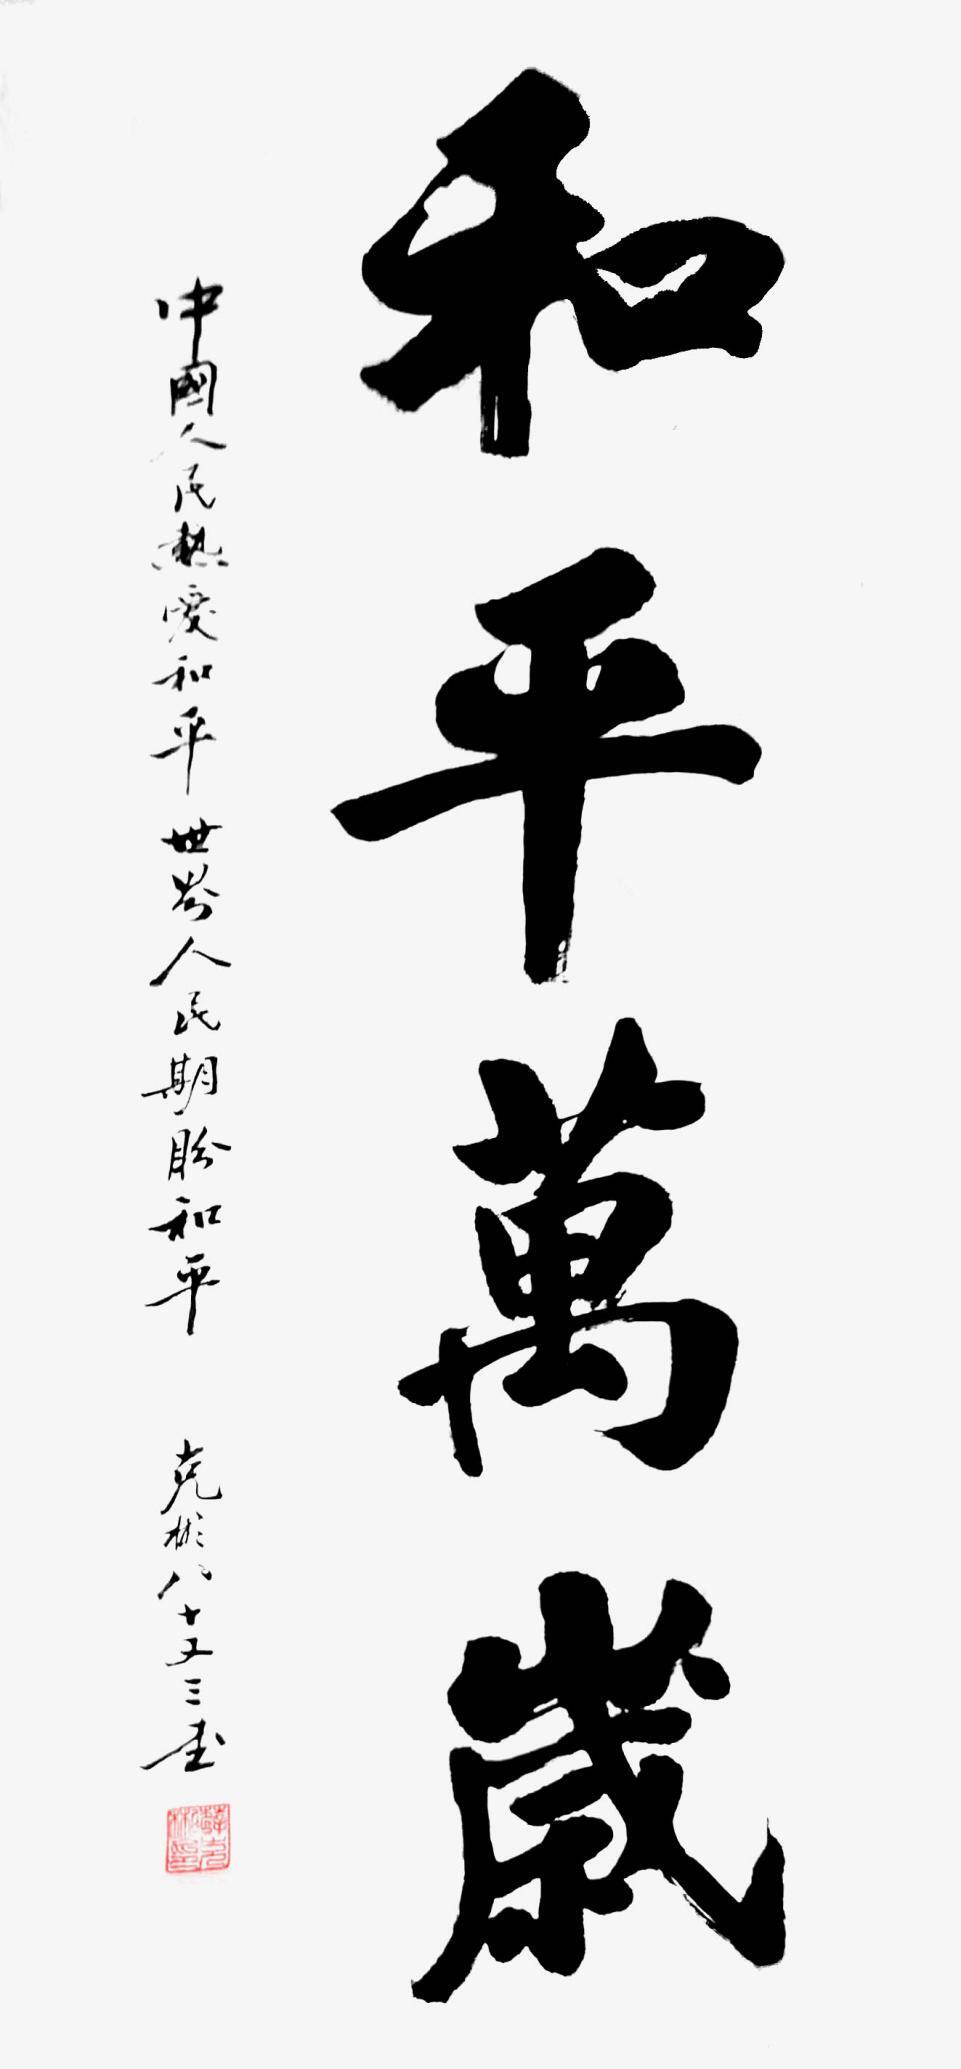 和平萬歲
中國人民熱愛和平 世界人民期盼和平 克彬八十又三書